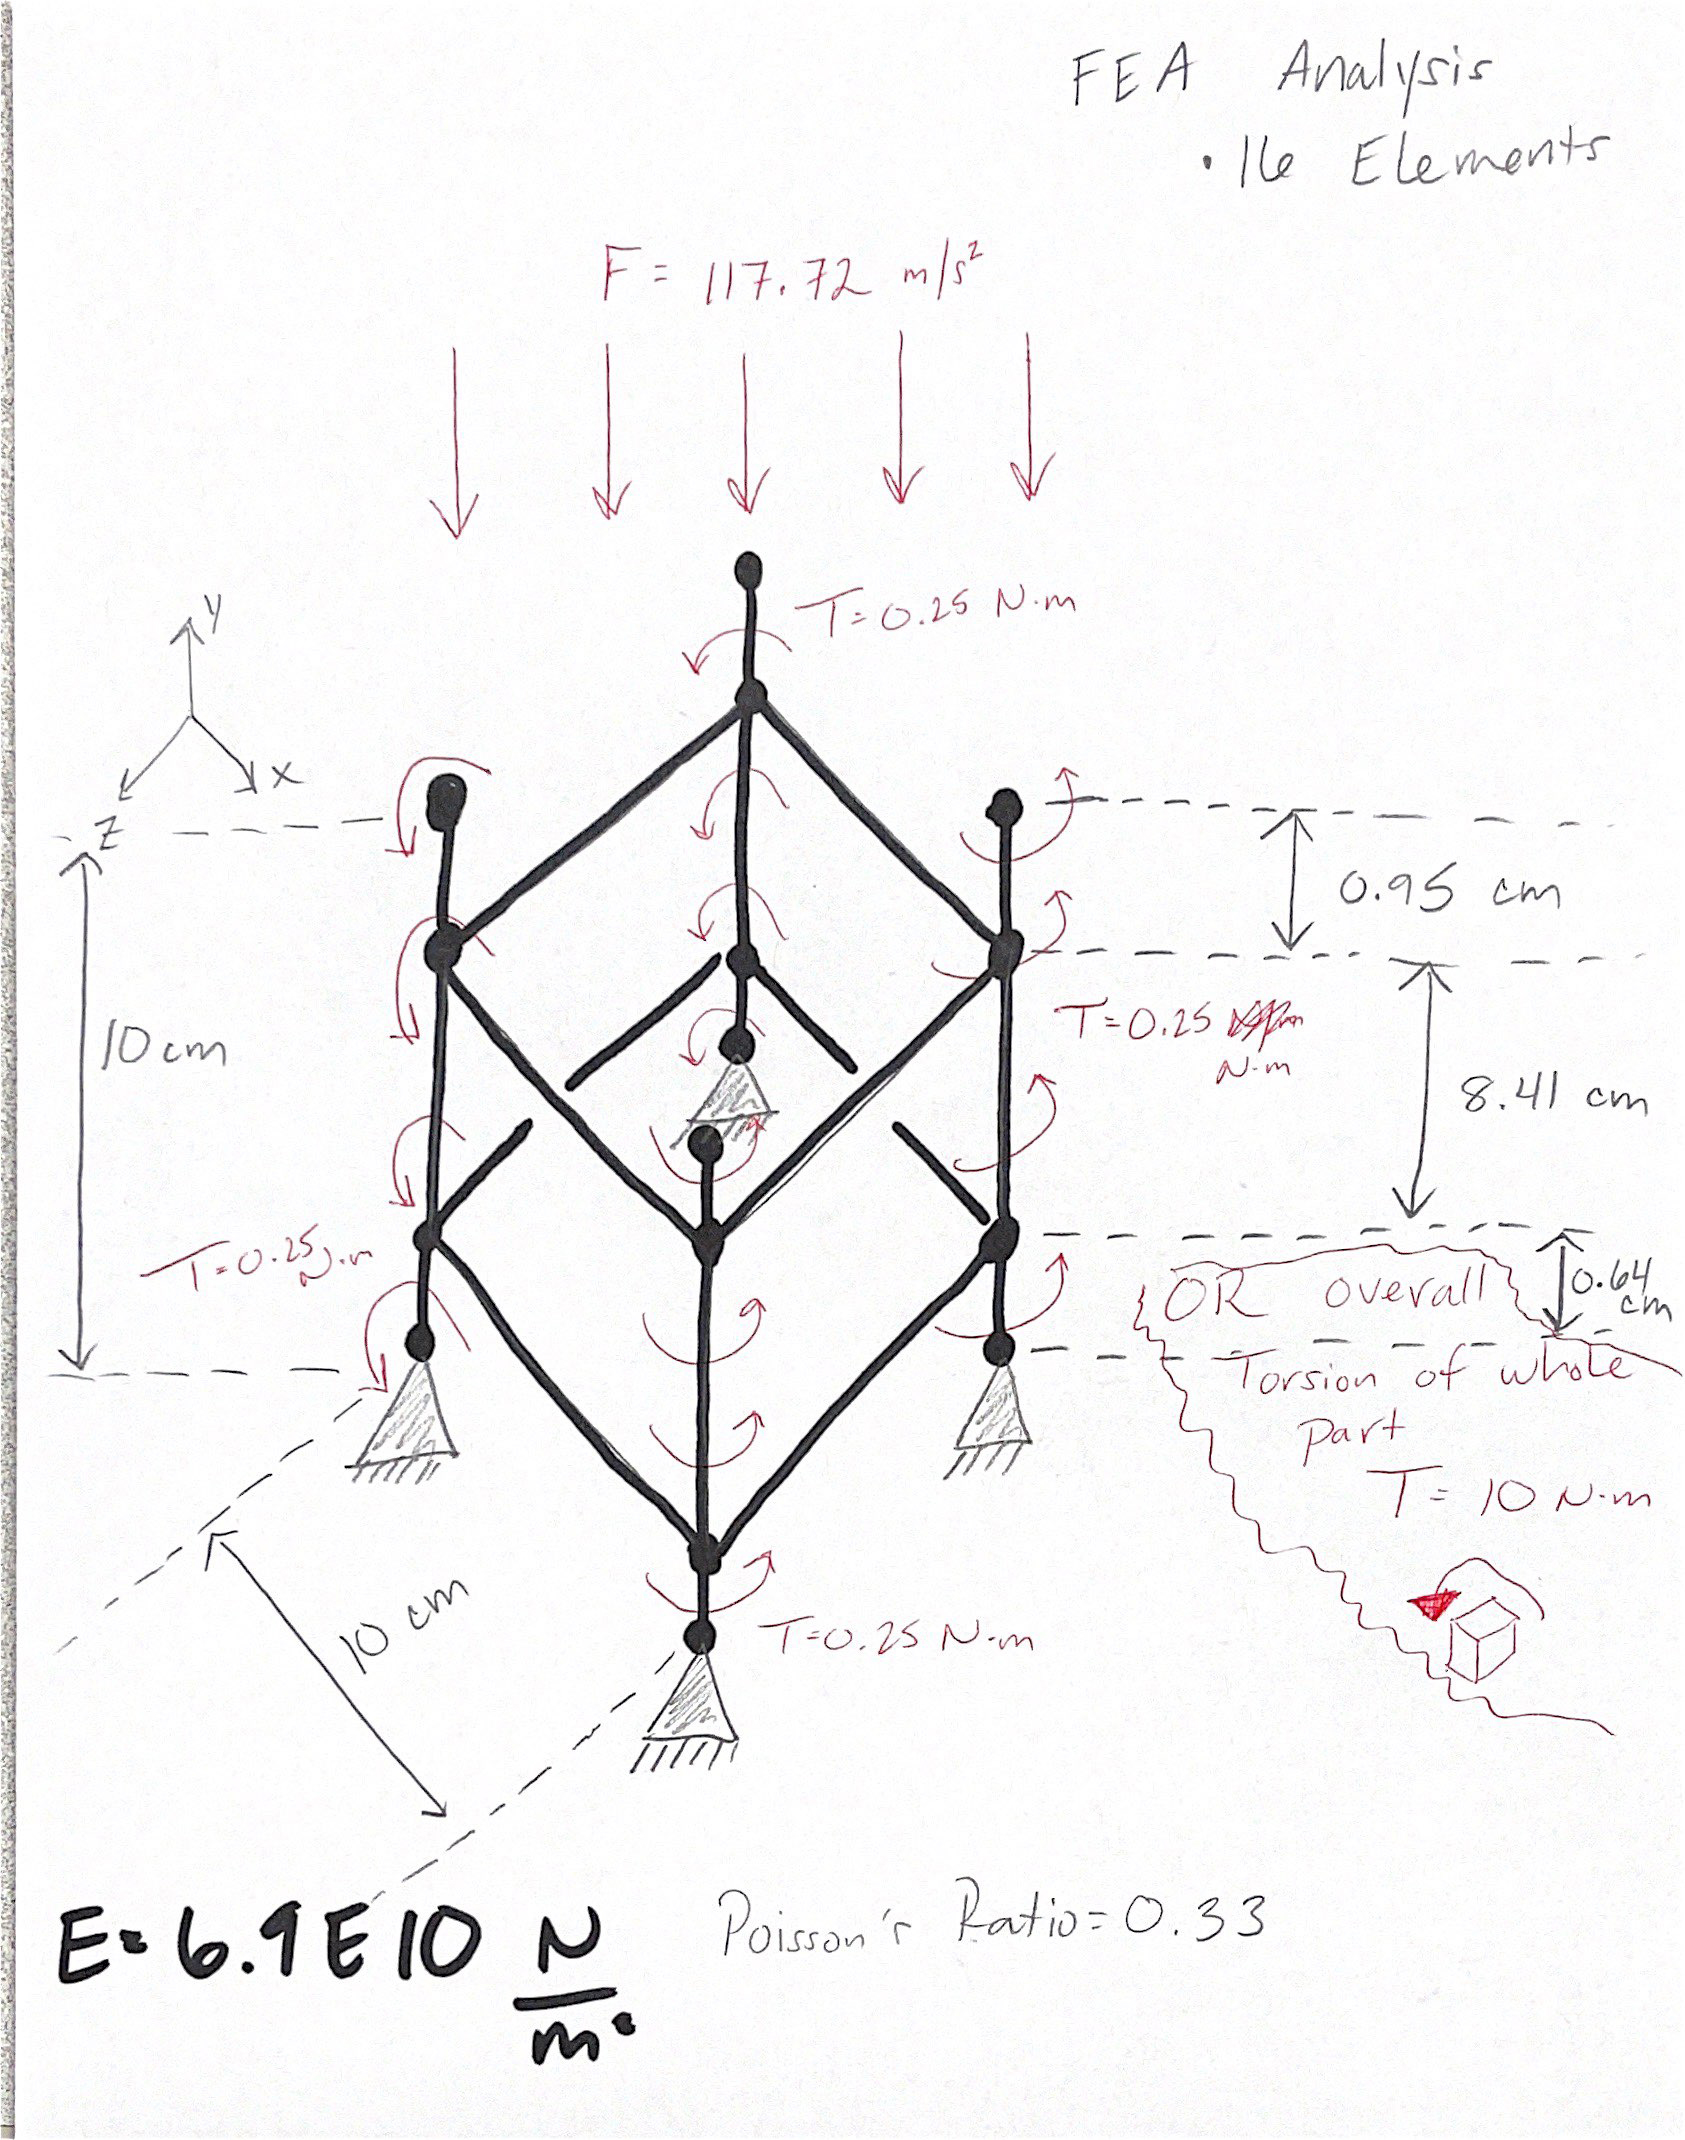 FEA Analysis
• 16 Elements
F = 117.72 m/s²
T= 0.25 N·m
y
x
z
0.95 cm
10cm
T=0.25
N·m
8.41 cm
T=0.25
N·m
0.64
cm
OR overall
Torsion of whole
part
T= 10 N·m
10 cm
T=0.25 N·m
E= 6.9E10 N
m
Poisson's Ratio= 0.33